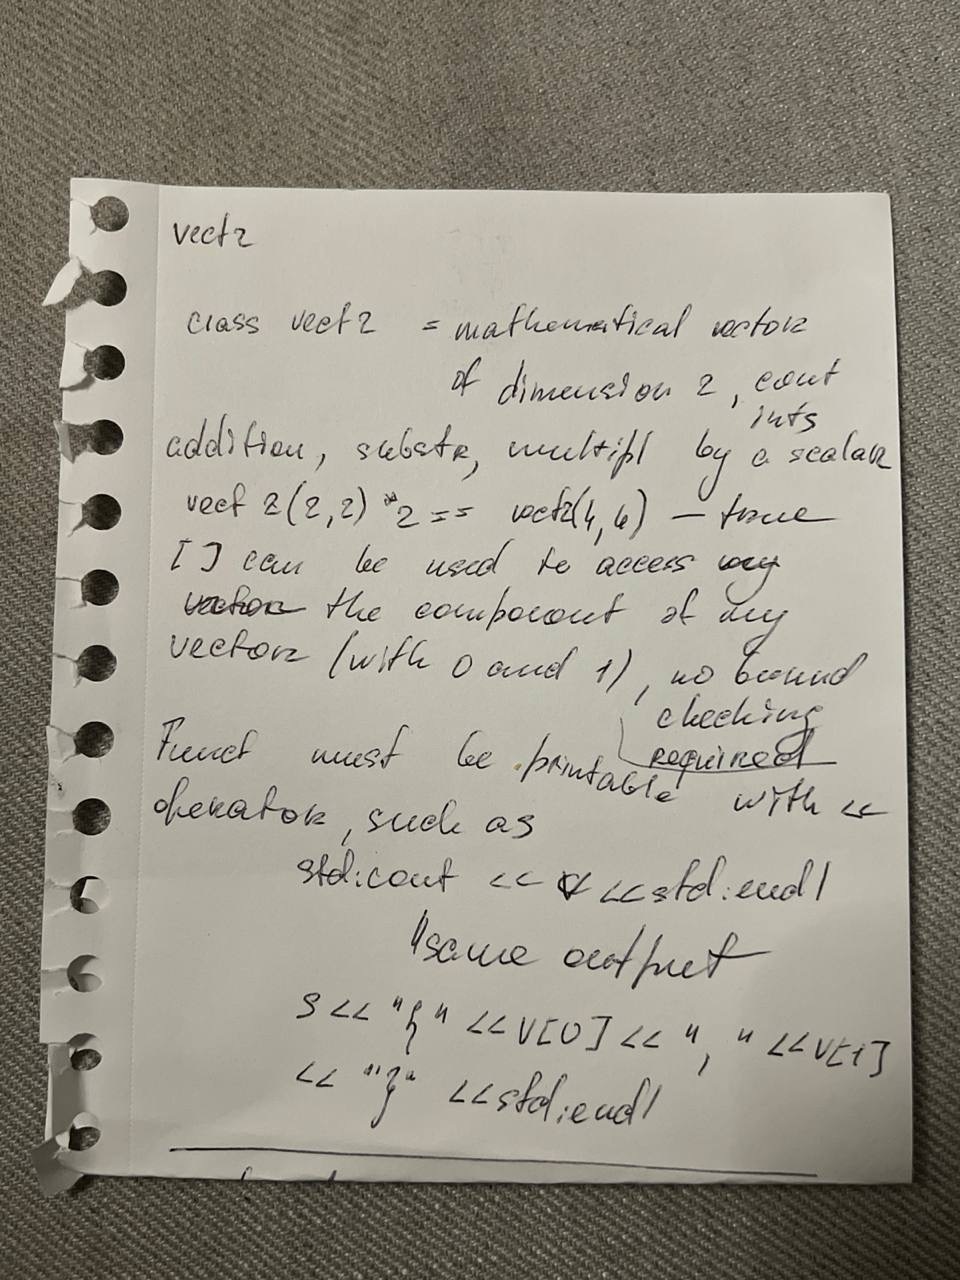 vect2
class vect2 = mathematical vector
of dimension 2, cout
ints
addition, substr, multipl by a scalar
vect 2(2,2) *2 == vect2(4,6) — true
[ ] can be used to access my
the component of my
vector (with 0 and 1), no bound
checking
required
Funct must be printable with <<
operator, such as
std:cout << v <<std:endl
"same output
S<< "{" <<V[0]<< ", " <<V[1]
<< "}" <<std:endl